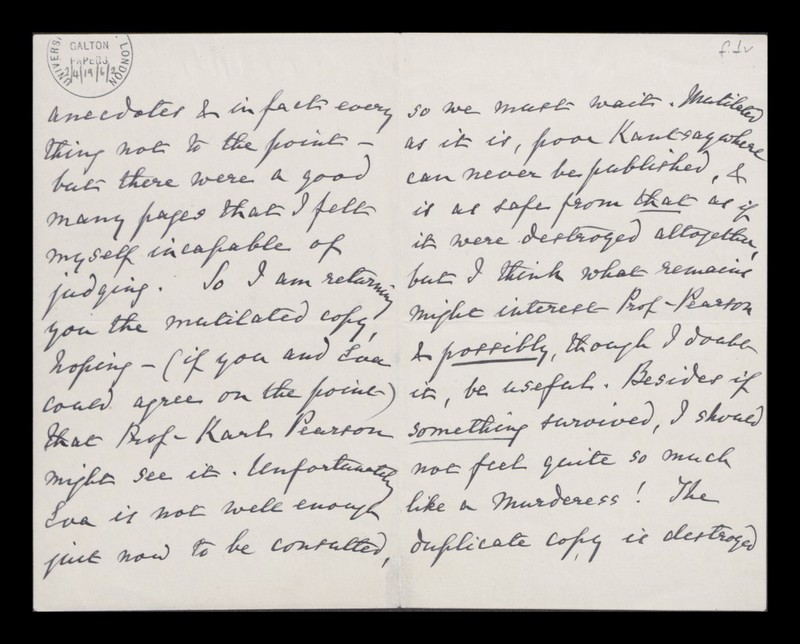 GALTON
PAPERS
UNIVERSI
LONDON
2/4/19/6/2
f.1v
anecdotes & in fact every
thing not to the point –
but there were a good
many pages that I felt
myself incapable of
judging. So I am returning
you the mutilated copy,
hoping – (if you and Eva
could agree on the point)
that Prof– Karl Pearson
might see it. Unfortunately
Eva is not well enough
just now to be consulted,
so we must wait. Mutilated
as it is, poor Kantsaywhere
can never be published, &
is as safe from that as if
it were destroyed altogether,
but I think what remains
might interest Prof– Pearson
& possibly, though I doubt
it, be useful. Besides if
something survived, I should
not feel quite so much
like a murderess! The
duplicate copy is destroyed